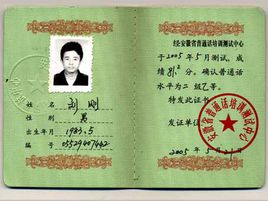 姓名 刘刚
性别 男
出生年月 1983.5
编号
经安徽省普通话培训测试中心
于2005年5月测试,成
绩81.2分。确认普通话
水平为二级乙等。
特发此证书。
发证单位
2005年5月21日
安徽省普通话培训测试中心